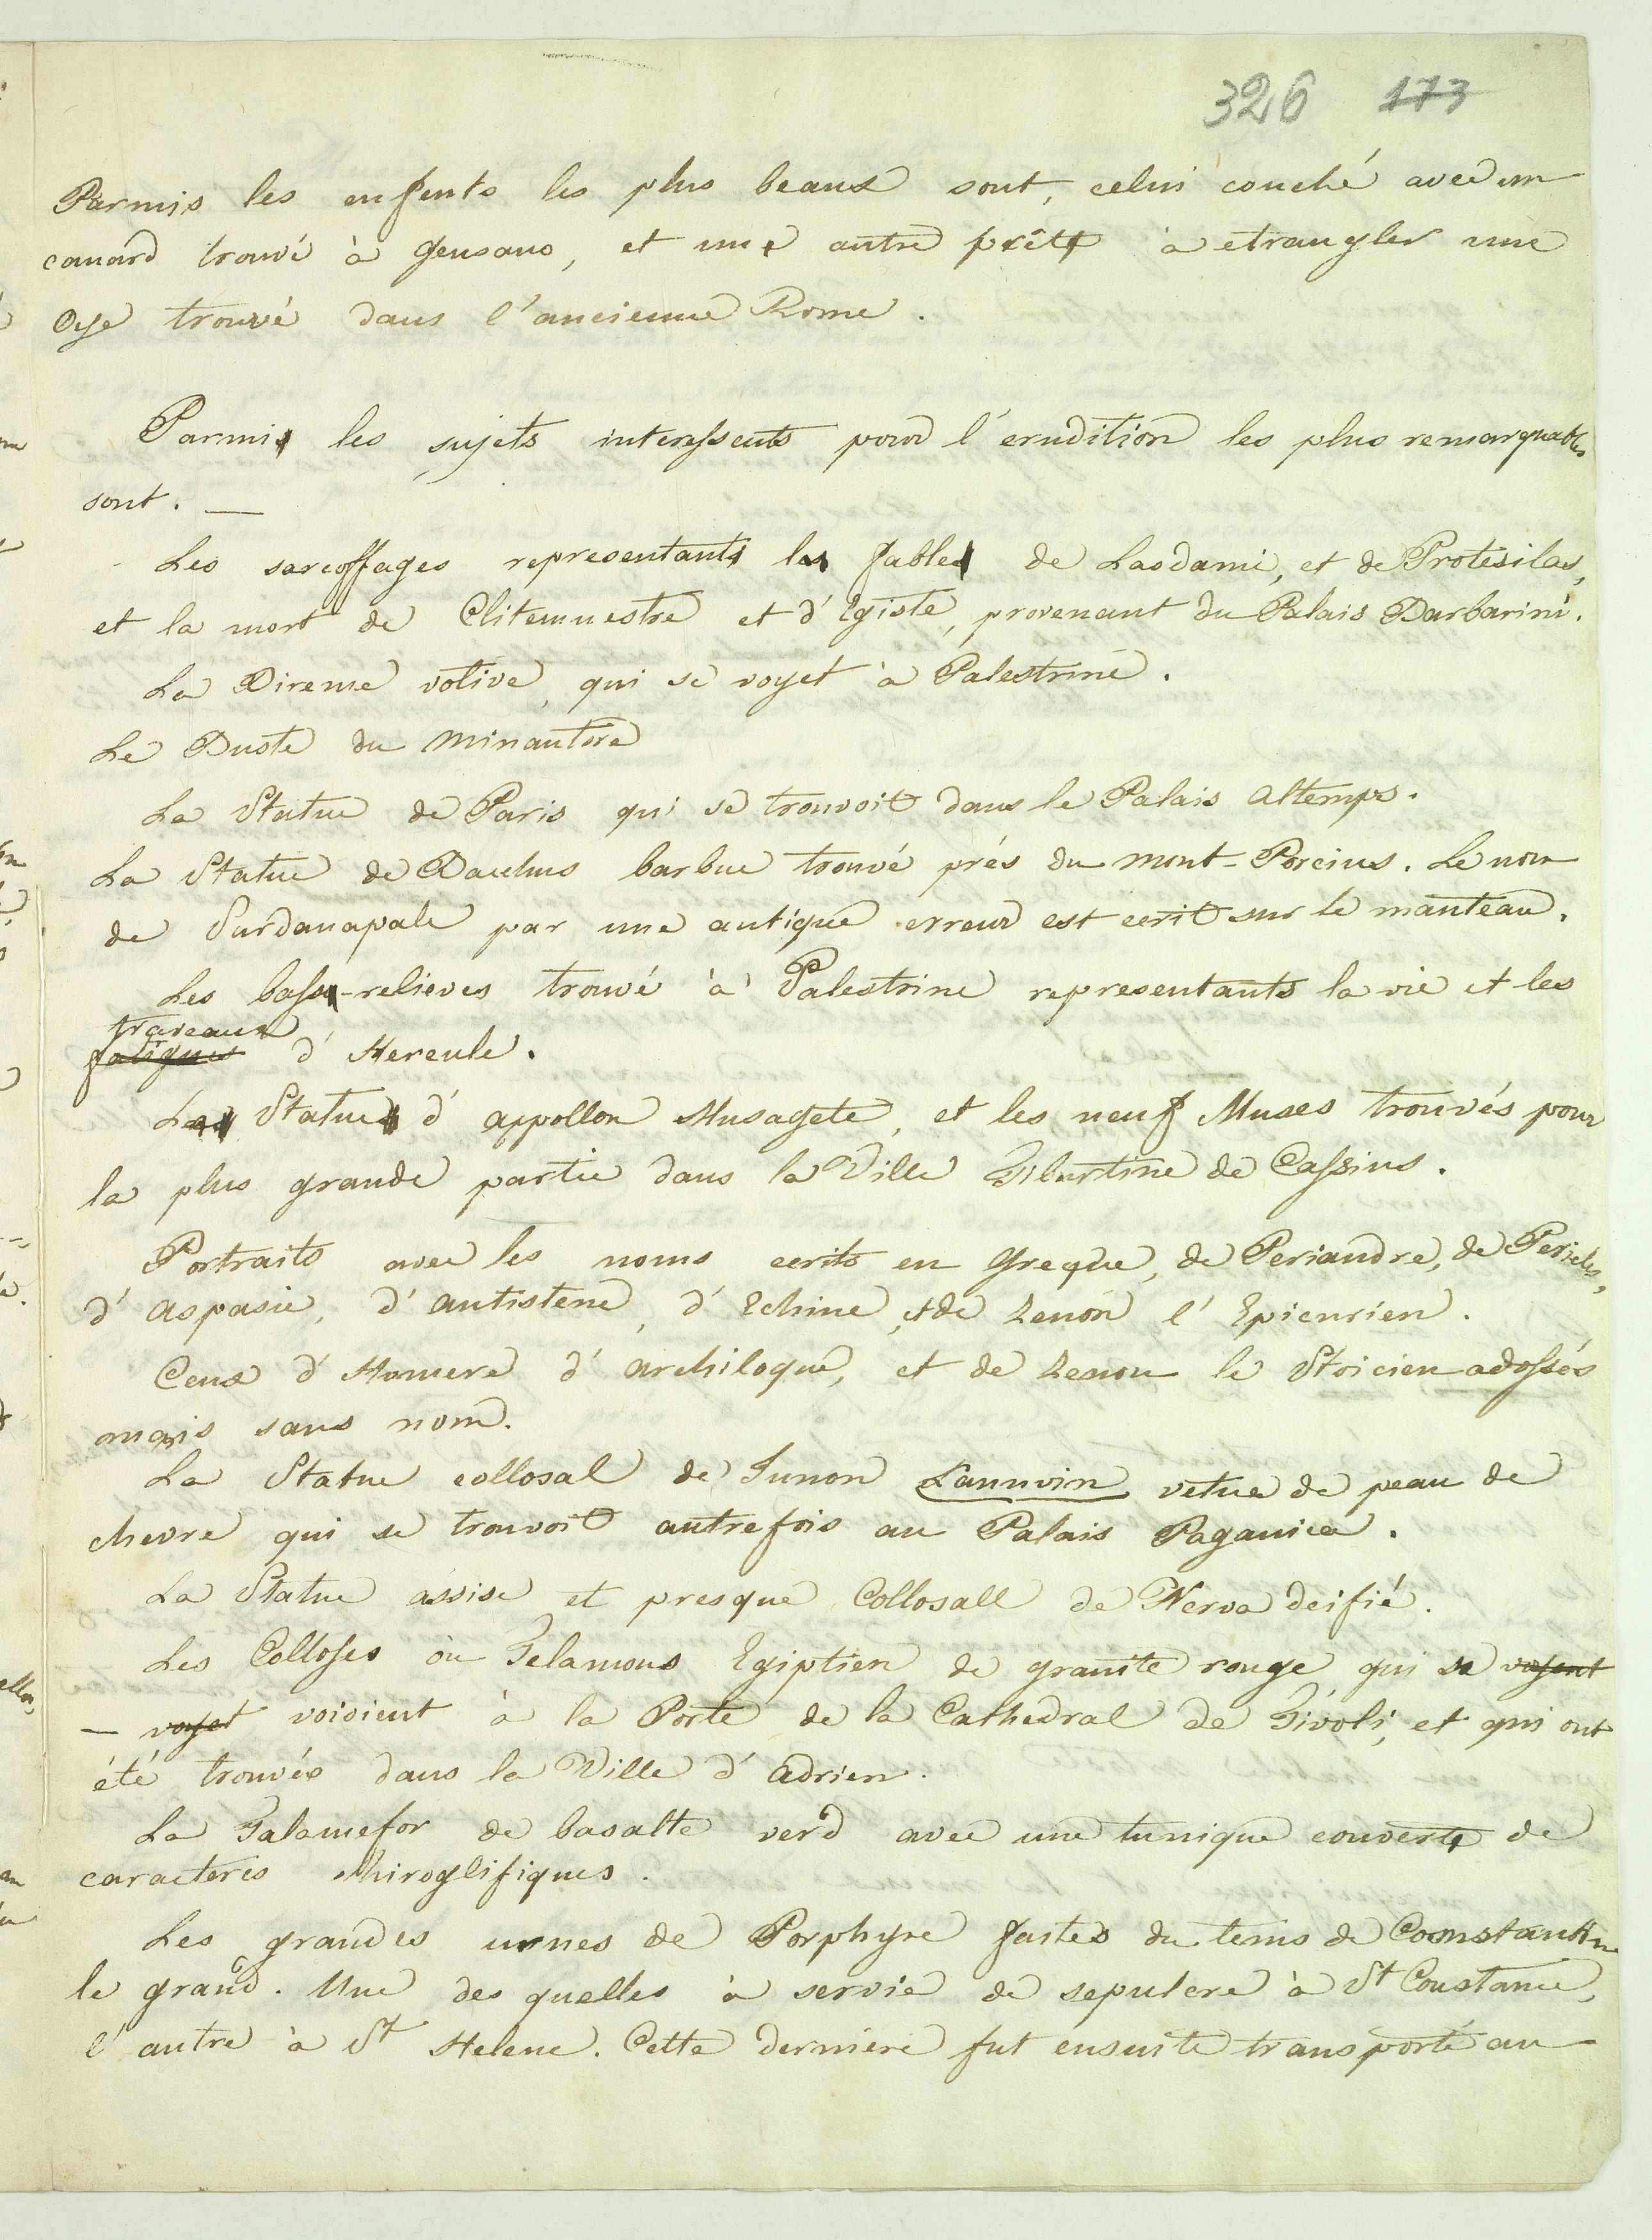 326 173
Parmis les enfents les plus beaux sont, celui couché avec un
canard trouvé à Gensano, et une autre prêt à etrangler une
Oye trouvé dans l'ancienne Rome.
Parmi les sujets interessents pour l'erudition les plus remarquables
sont. —
Les sarcoffages representants la fable de Laodami, et de Protesilas,
et la mort de Clitemnestre et d'Egiste, provenant du Palais Barbarini.
La Bireme votive, qui se voyet à Palestrine.
Le Buste du Minautore
La Statue de Paris qui se trouvoit dans le Palais Altemps.
La Statue de Bacchus barbue trouvé prés du mont-Porcius. Le nom
de Sardanapale par une antique erreur est ecrit sur le manteau.
Les bass-relieves trouvé à Palestrine representants la vie et les
traveaux
fatigues d'Hercule.
La Statue d'appollon Musagete, et les neuf Muses trouvés pour
la plus grande partie dans la Ville Tiburtine de Cassius.
Portraits avec les noms ecrits en Greque, de Periandre, de Pericles,
d'Aspasie, d'Antistene, d'Echine, et de Zenon l'Epicurien.
Ceux d'Homere d'archiloque, et de Zenon le Stoicien adossés
mais sans nom.
La Statue collosal de Junon Lanuvin vetue de peau de
chevre qui se trouvoit autrefois au Palais Paganica.
La Statue assise et presque Collosall de Nerva deifié.
Les Colloses ou Telamons Egiptien de granite rouge qui se voyent
— voyet voioient à la Porte de la Cathedral de Tivoli, et qui ont
été trouvés dans la Ville d'Adrien.
La Talamefor de basalte verd avec une tunique couverte de
caracteres hiroglifiques.
Les grandes urnes de Porphyre faites du tems de Comstantin
le grand. Une des quelles à servie de sepulcre à St Constance,
l'autre à St Helene. Cette derniere fut ensuite transporté au